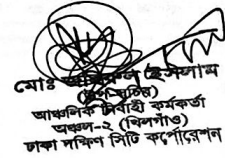 মোঃ ইসলাম
(উপসচিব)
আঞ্চলিক নির্বাহী কর্মকর্তা
অঞ্চল-২ (খিলগাঁও)
ঢাকা দক্ষিণ সিটি কর্পোরেশন